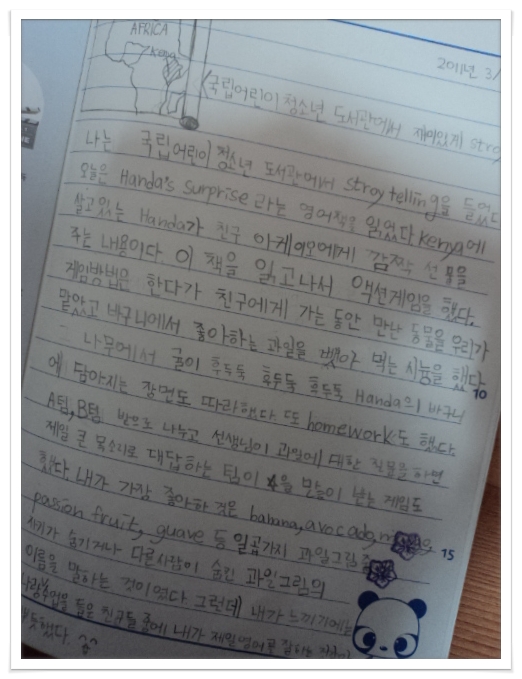 AFRICA
Kenya
2011년 3/
(국립어린이 청소년 도서관에서 재미있게 stroy
나는 국립어린이 청소년 도서관에서 stroy telling을 들었다
오늘은 Handa's surprise 라는 영어책을 읽었다. Kenya에
살고있는 Handa가 친구 아케이오에게 깜짝 선물을
주는 내용이다 이 책을 읽고나서 액션게임을 했다.
게임방법은 한다가 친구에게 가는동안 만난 동물을 우리가
맡았고 바구니에서 좋아하는 과일을 뺏아 먹는 시늉을 했다
10
나무에서 귤이 후두둑 후두둑 후두둑 Handa의 바구니
에 담아지는 장면도 따라했다. 또 homework도 했다.
A팀, B팀 반으로 나누고 선생님이 과일에 대한 질문을 하면
제일 큰 목소리로 대답하는 팀이 을 많이 받는 게임도
했다. 내가 가장 좋아한 것은 banana, avocado,
15
pasion fruit, guave 등 일곱가지 과일그림
자기가 숨기거나 다른사람이 숨긴 과일그림의
이름을 말하는 것이었다. 그런데 내가 느끼기에는
들은 친구들 중에 내가 제일 영어를 잘하는
했다.